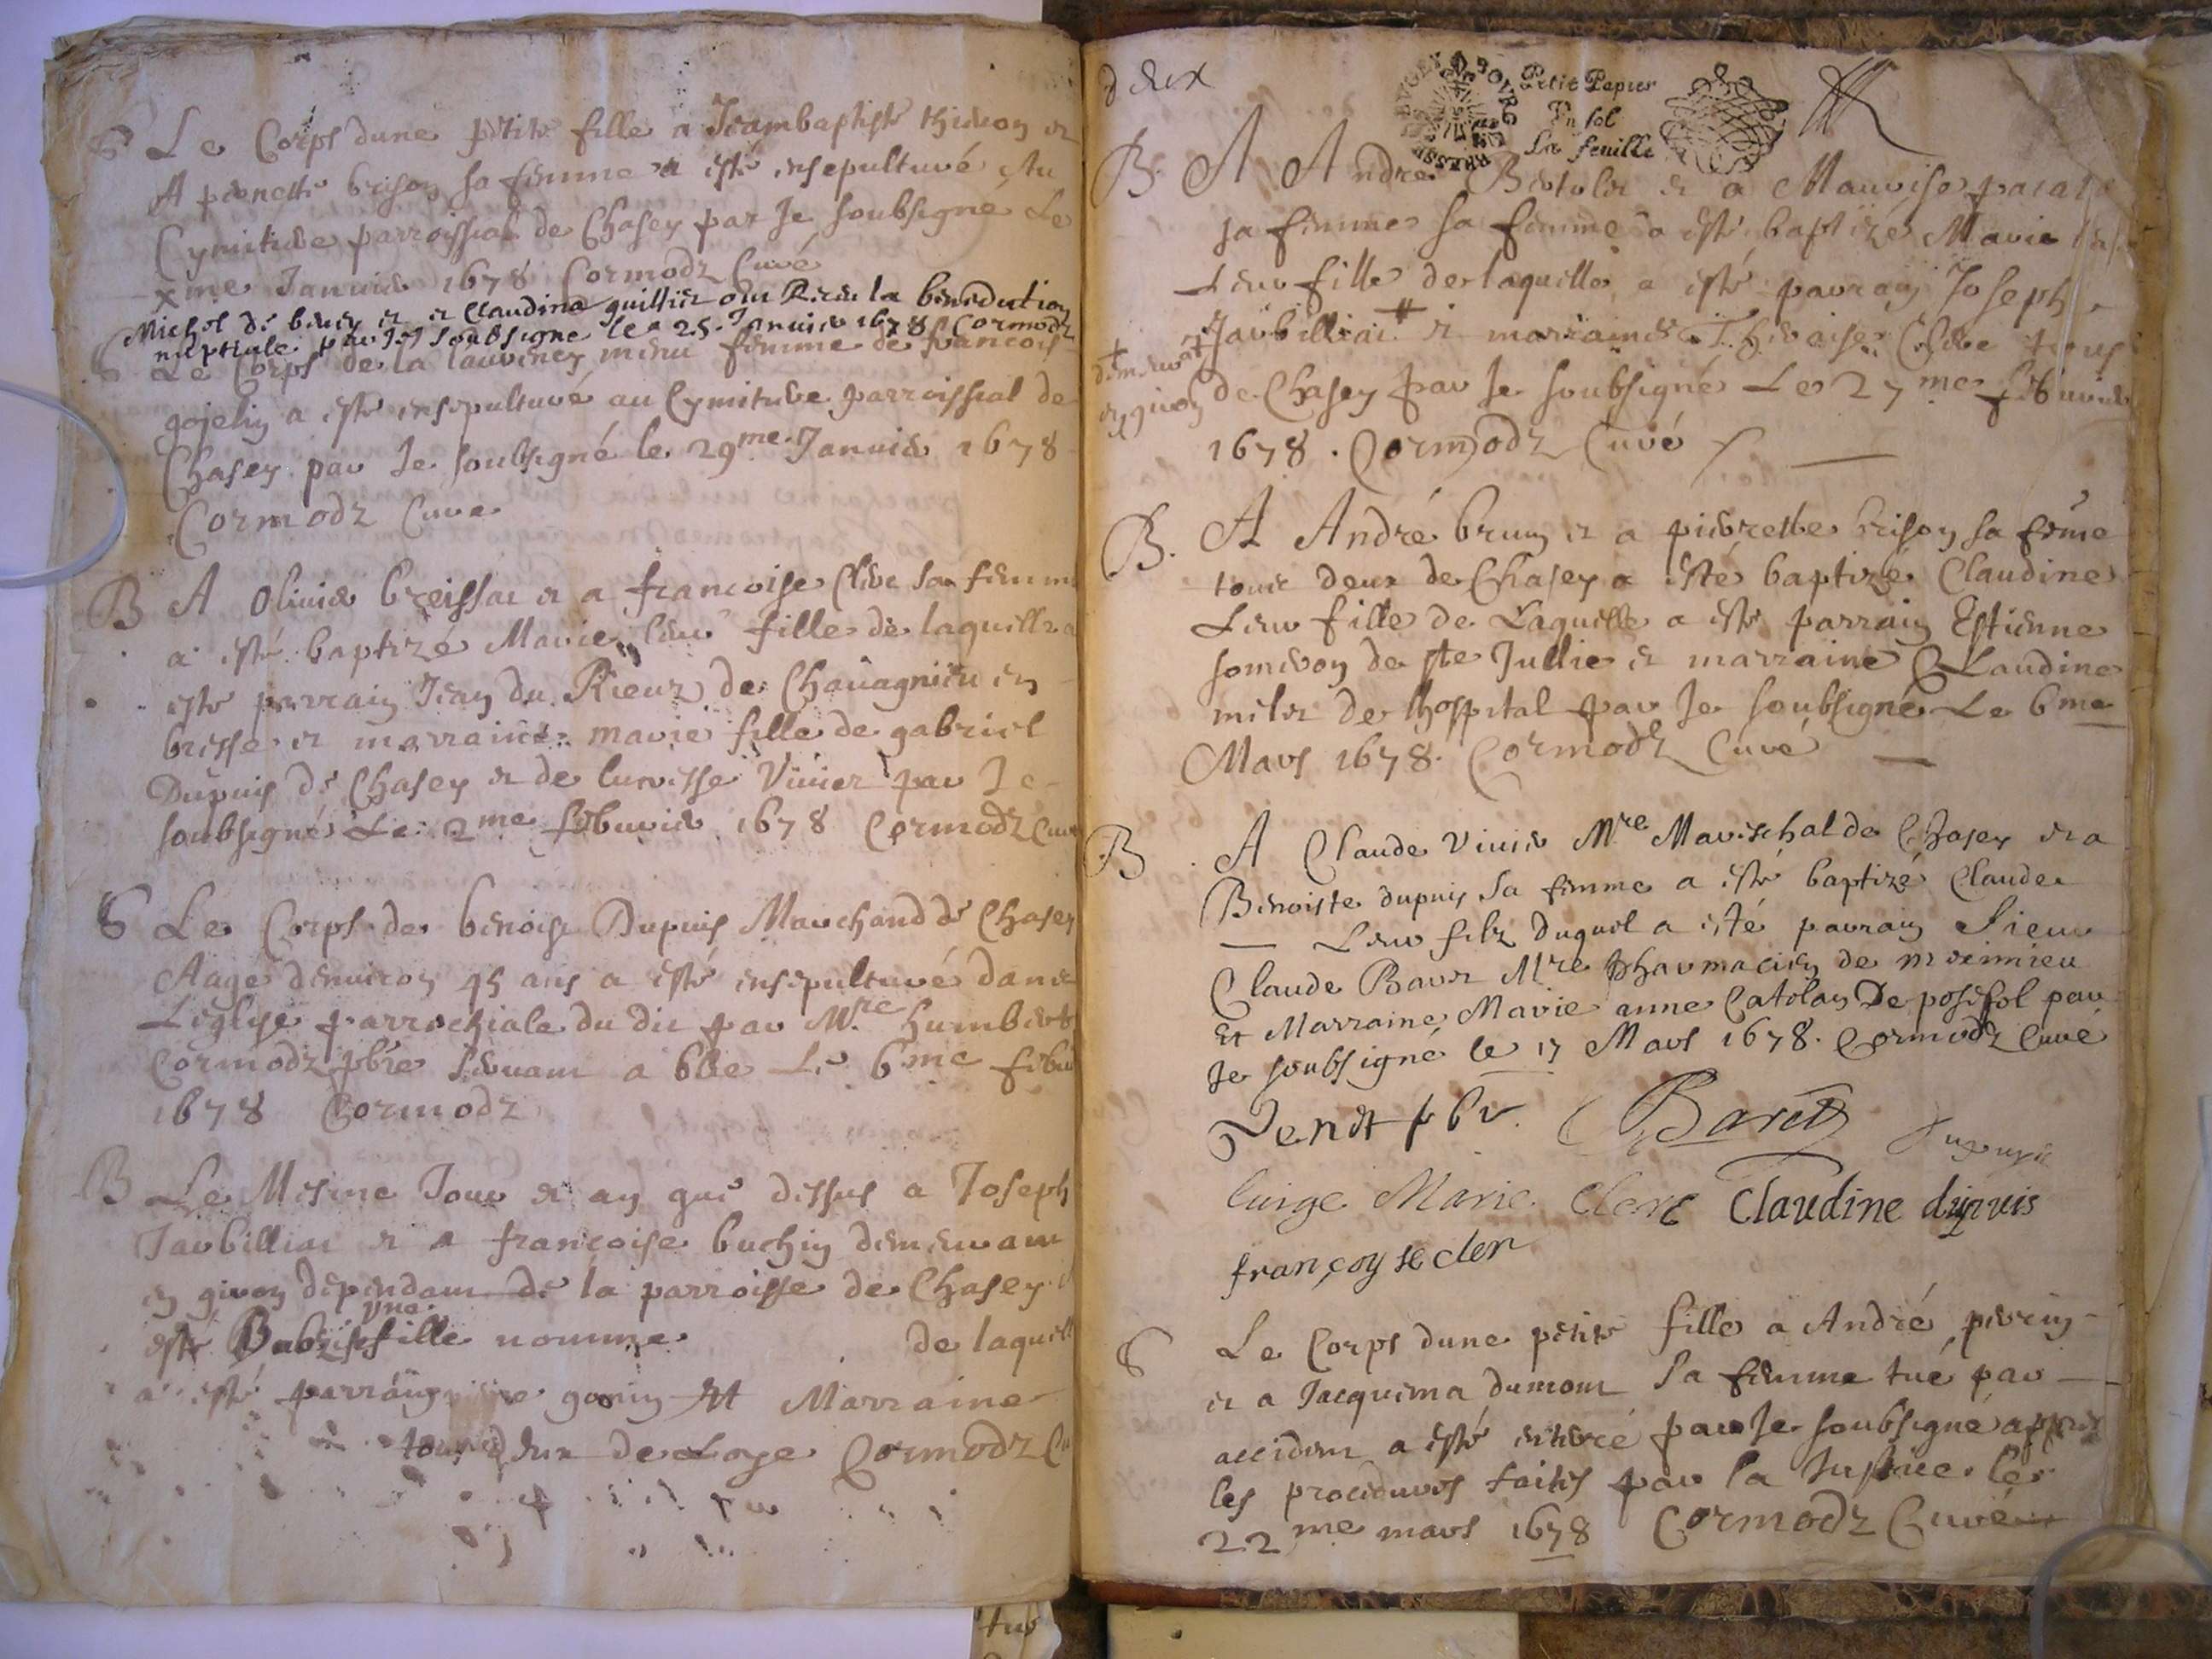 S Le Corps dune petite fille a Jeambaptiste thieuon et
A pernette brison sa femme a esté ensepulturé Au
Cymitiere parroissial de Chasey par Je soubsigné Le
xme Januier 1678 Cormodz Curé
Michel de et Claudina guillier ont Receu la benediction
nuptiale par Je soubsigné le 25 Januier 1678 Cormodz
S Le Corps de la femme de francois
gojelin a esté ensepulturé au Cymitiere parroissial de
Chasey par Je soubsigné le 29me Januier 1678
Cormodz Curé
B A Oliuier breissat et a francoise Clere sa femme
a esté baptizé Marie leur fille de laquelle a
esté parrain Jean du Rieux de Chauagnieu en
bresse et marraine marie fille de gabriel
Dupuis de Chasey et de lucresse Viuier par Je
soubsigné Le 2me feburier 1678 Cormodz Curé
S Le Corps de benoist Dupuis Marchand de Chasey
Aagé denuiron 45 ans a esté ensepulturé dans
Leglise parrochiale du dit par Mre humbert
Cormodz pbre seruant a Le 6me febu
1678 Cormodz
B Le Mesme Jour et an que dessus a Joseph
Jarbilliat et a francoise buchin demeurant
en giuon dependant de la parroisse de Chasey
esté Babtisé
vne
fille nommée de laquelle
a esté parrain gonin Et Marraine
tous deux de Loye Cormodz
deux
BRESSE BVGEY
Petit Papier
Vn sol
La feuille
B. A André Bertolet et a
sa femme sa femme a esté baptizé Marie
Leur fille de laquelle a esté parrain Joseph
Jarbilliat # et marraine Theraise Clere tous
+ demeurat
en giuon
de Chasey par Je soubsigné Le 27me feburier
1678. Cormodz Curé
B. A André brun et a pierrette brison sa feme
touts deux de Chasey a esté baptizé Claudine
Leur fille de Laquelle a esté parrain Estienne
someron de ste Jullie et marraine Claudine
milet de lhospital par Je soubsigné Le 6me
Mars 1678. Cormodz Curé
B A Claude Viuier Mre Mareschal de Chasey et a
Benoiste dupuis sa femme a esté baptizé Claude
Leur filz duquel a esté parrain Sieur
Claude Baret Mre pharmacien de meximieu
Et Marraine Marie anne Catolan De posafol par
Je soubsigné le 17 Mars 1678. Cormodz Curé
Baret
Marie Clerc Claudine dupuis
françoyse cler
S Le Corps dune petite fille a André perrin
et a Jacquema dumont sa femme tué par
accident a esté enterré par Je soubsigné apres
les procedures faites par la Justice le
22me mars 1678 Cormodz Curé